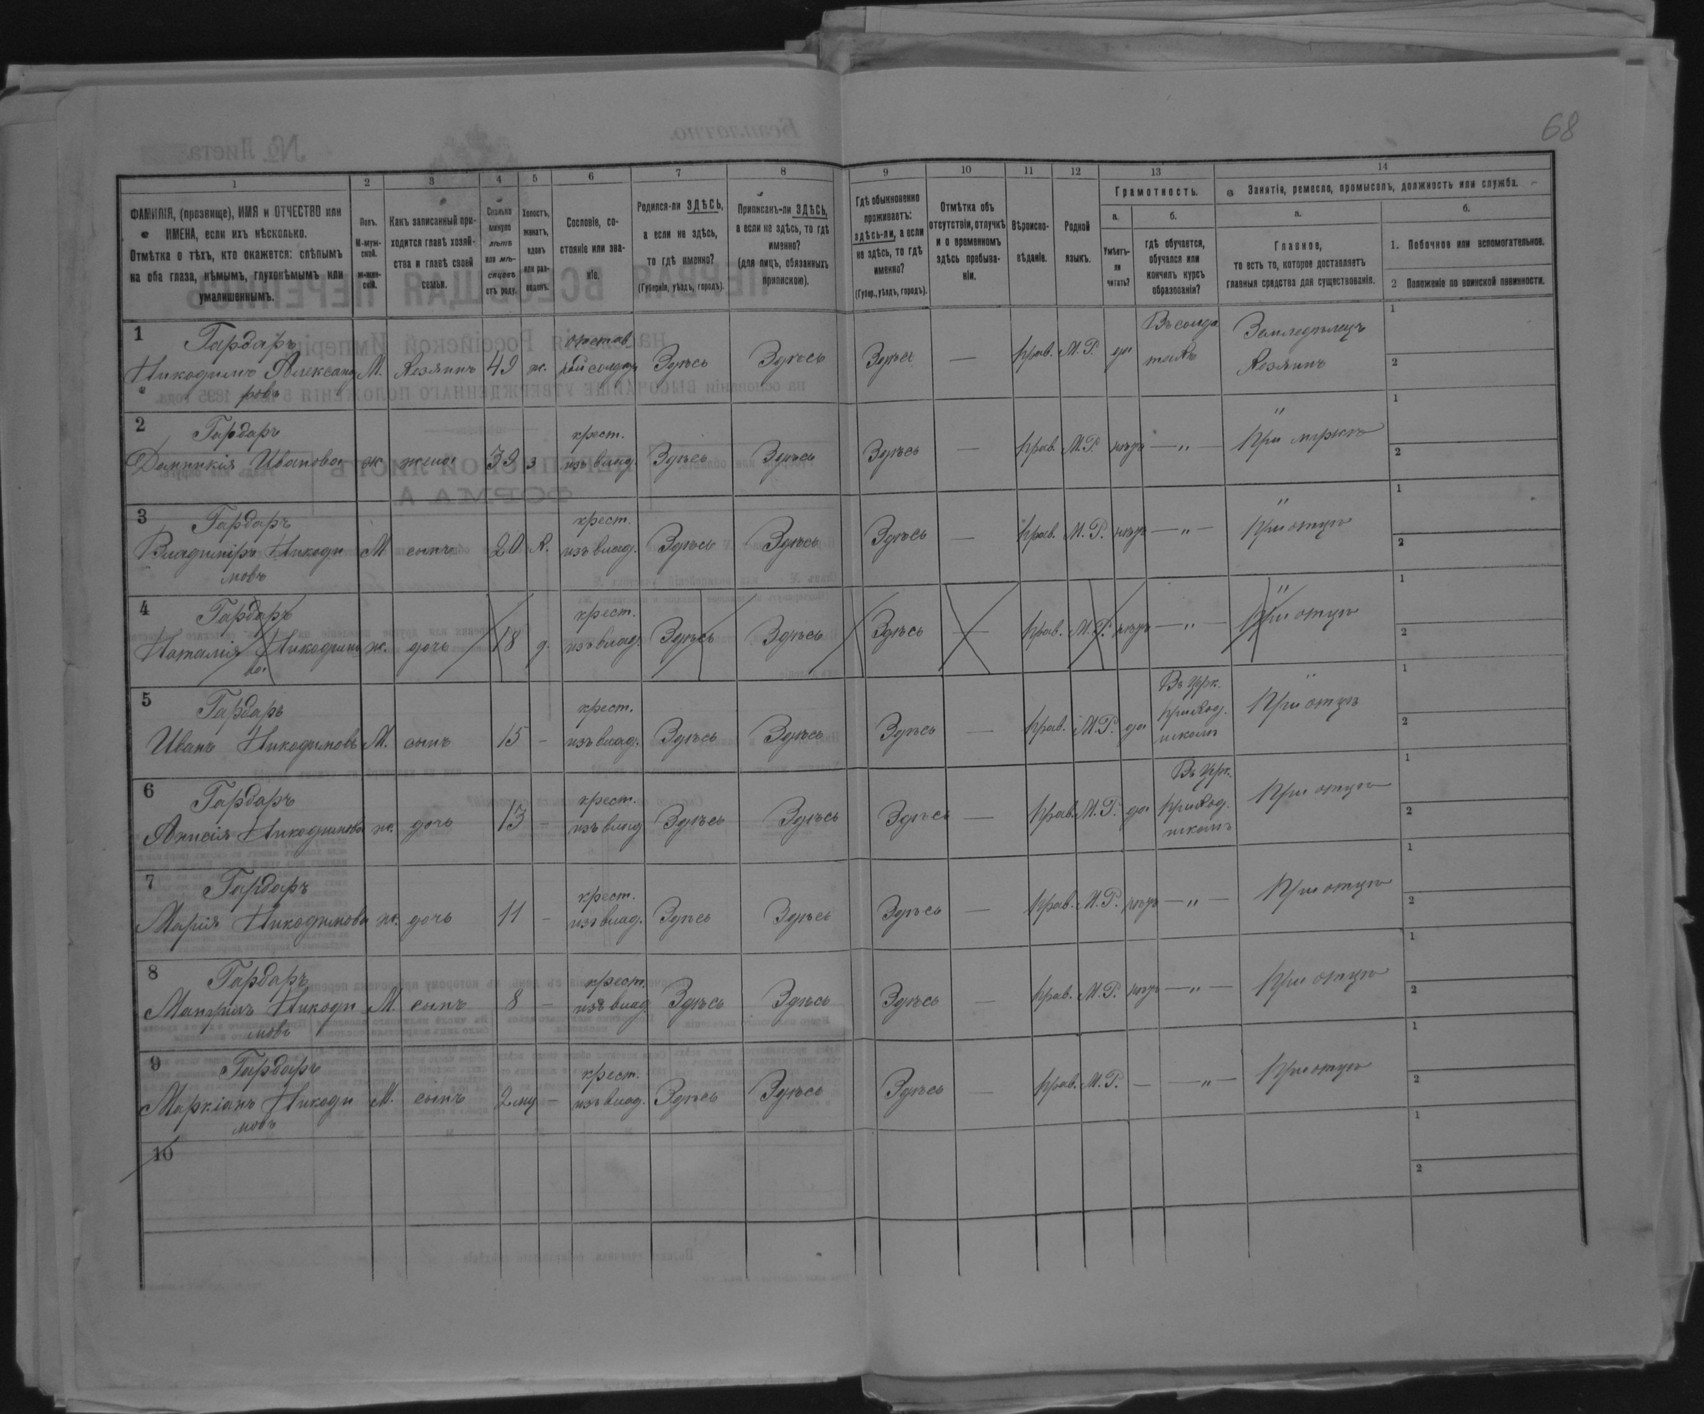 68
1 2 3 4 5 6 7 8 9 10 11 12 13 14
ФАМИЛІЯ, (прозвище), ИМЯ и ОТЧЕСТВО или ИМЕНА, если ихъ нѣсколько.
Отмѣтка о тѣхъ, кто окажется: слѣпымъ на оба глаза, нѣмымъ, глухонѣмымъ или умалишеннымъ.
Полъ.
М-муж-
ской.
ж-жен-
скій.
Какъ записанный при-
ходится главѣ хозяй-
ства и главѣ своей
семьи.
Сколько
минуло
лѣтъ
или мѣ-
сяцевъ
отъ роду.
Холостъ,
женатъ,
вдовъ
или раз-
веденъ.
Сословіе, со-
стояніе или зва-
ніе.
Родился-ли ЗДѢСЬ,
а если не здѣсь,
то гдѣ именно?
(Губернія, уѣздъ, городъ).
Приписанъ-ли ЗДѢСЬ,
а если не здѣсь, то гдѣ
именно?
(для лицъ, обязанныхъ
припискою).
Гдѣ обыкновенно
проживаетъ:
здѣсь-ли, а если
не здѣсь, то гдѣ
именно?
(Губер., уѣздъ, городъ).
Отмѣтка объ
отсутствіи, отлучкѣ
и о временномъ
здѣсь пребыва-
ніи.
Вѣроиспо-
вѣданіе.
Родной
языкъ.
Грамотность.
а.
Умѣетъ-
ли
читать?
б.
гдѣ обучается,
обучался или
кончилъ курсъ
образованія?
Занятіе, ремесло, промыселъ, должность или служба.
а.
Главное,
то есть то, которое доставляетъ
главныя средства для существованія.
б.
1. Побочное или вспомогательное.
2 Положеніе по воинской повинности.
1 Гардаръ
Никодимъ Александ
ровъ М. хозяинъ 49 ж. Здѣсь Здѣсь Здѣсь — прав. М.Р. да Земледѣлецъ
Хозяинъ 1 2
2 Гардаръ
Домникія Иванова ж. жена 39 з крест.
изъ влад. Здѣсь Здѣсь Здѣсь — прав. М.Р. нѣтъ — „ — „
При мужѣ 1 2
3 Гардаръ
Владиміръ Никоди
мовъ М сынъ 20 х. крест.
изъ влад. Здѣсь Здѣсь Здѣсь — прав. М.Р. нѣтъ — „ — „
При отцѣ 1 2
4 Гардаръ
Наталія Никодимо
ва ж. дочь 18 д. крест.
изъ влад. Здѣсь Здѣсь Здѣсь — прав. М.Р. нѣтъ — „ — „
При отцѣ 1 2
5 Гардаръ
Иванъ Никодимовъ М. сынъ 15 - крест.
изъ влад. Здѣсь Здѣсь Здѣсь — прав. М.Р. да Въ црк.
приход.
школѣ „
При отцѣ 1 2
6 Гардаръ
Анисія Никодимова ж. дочь 13 - крест.
изъ влад Здѣсь Здѣсь Здѣсь — прав. М.Р. да Въ црк.
приход.
школѣ При отцѣ 1 2
7 Гардаръ
Марія Никодимова ж. дочь 11 - крест.
изъ влад. Здѣсь Здѣсь Здѣсь — прав. М.Р. нѣтъ — „ — При отцѣ 1 2
8 Гардаръ
Никоди
мовъ М сынъ 8 - крест.
изъ влад. Здѣсь Здѣсь Здѣсь — прав. М.Р. нѣтъ — „ — При отцѣ 1 2
9 Гардаръ
Маркіанъ Никоди
мовъ М. сынъ крест.
изъ влад. Здѣсь Здѣсь Здѣсь — прав. М.Р. — — „ — При отцѣ 1 2
10 1 2